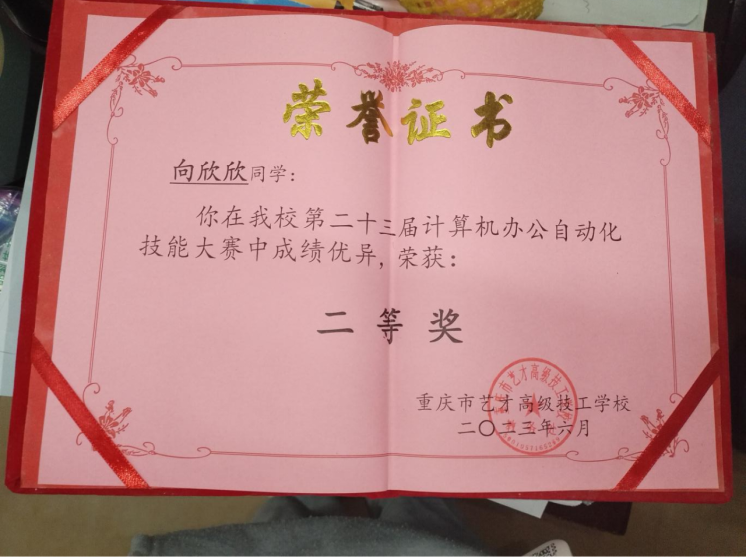 荣誉证书
向欣欣同学：
你在我校第二十三届计算机办公自动化
技能大赛中成绩优异，荣获：
二等奖
重庆市艺才高级技工学校
二〇二三年六月